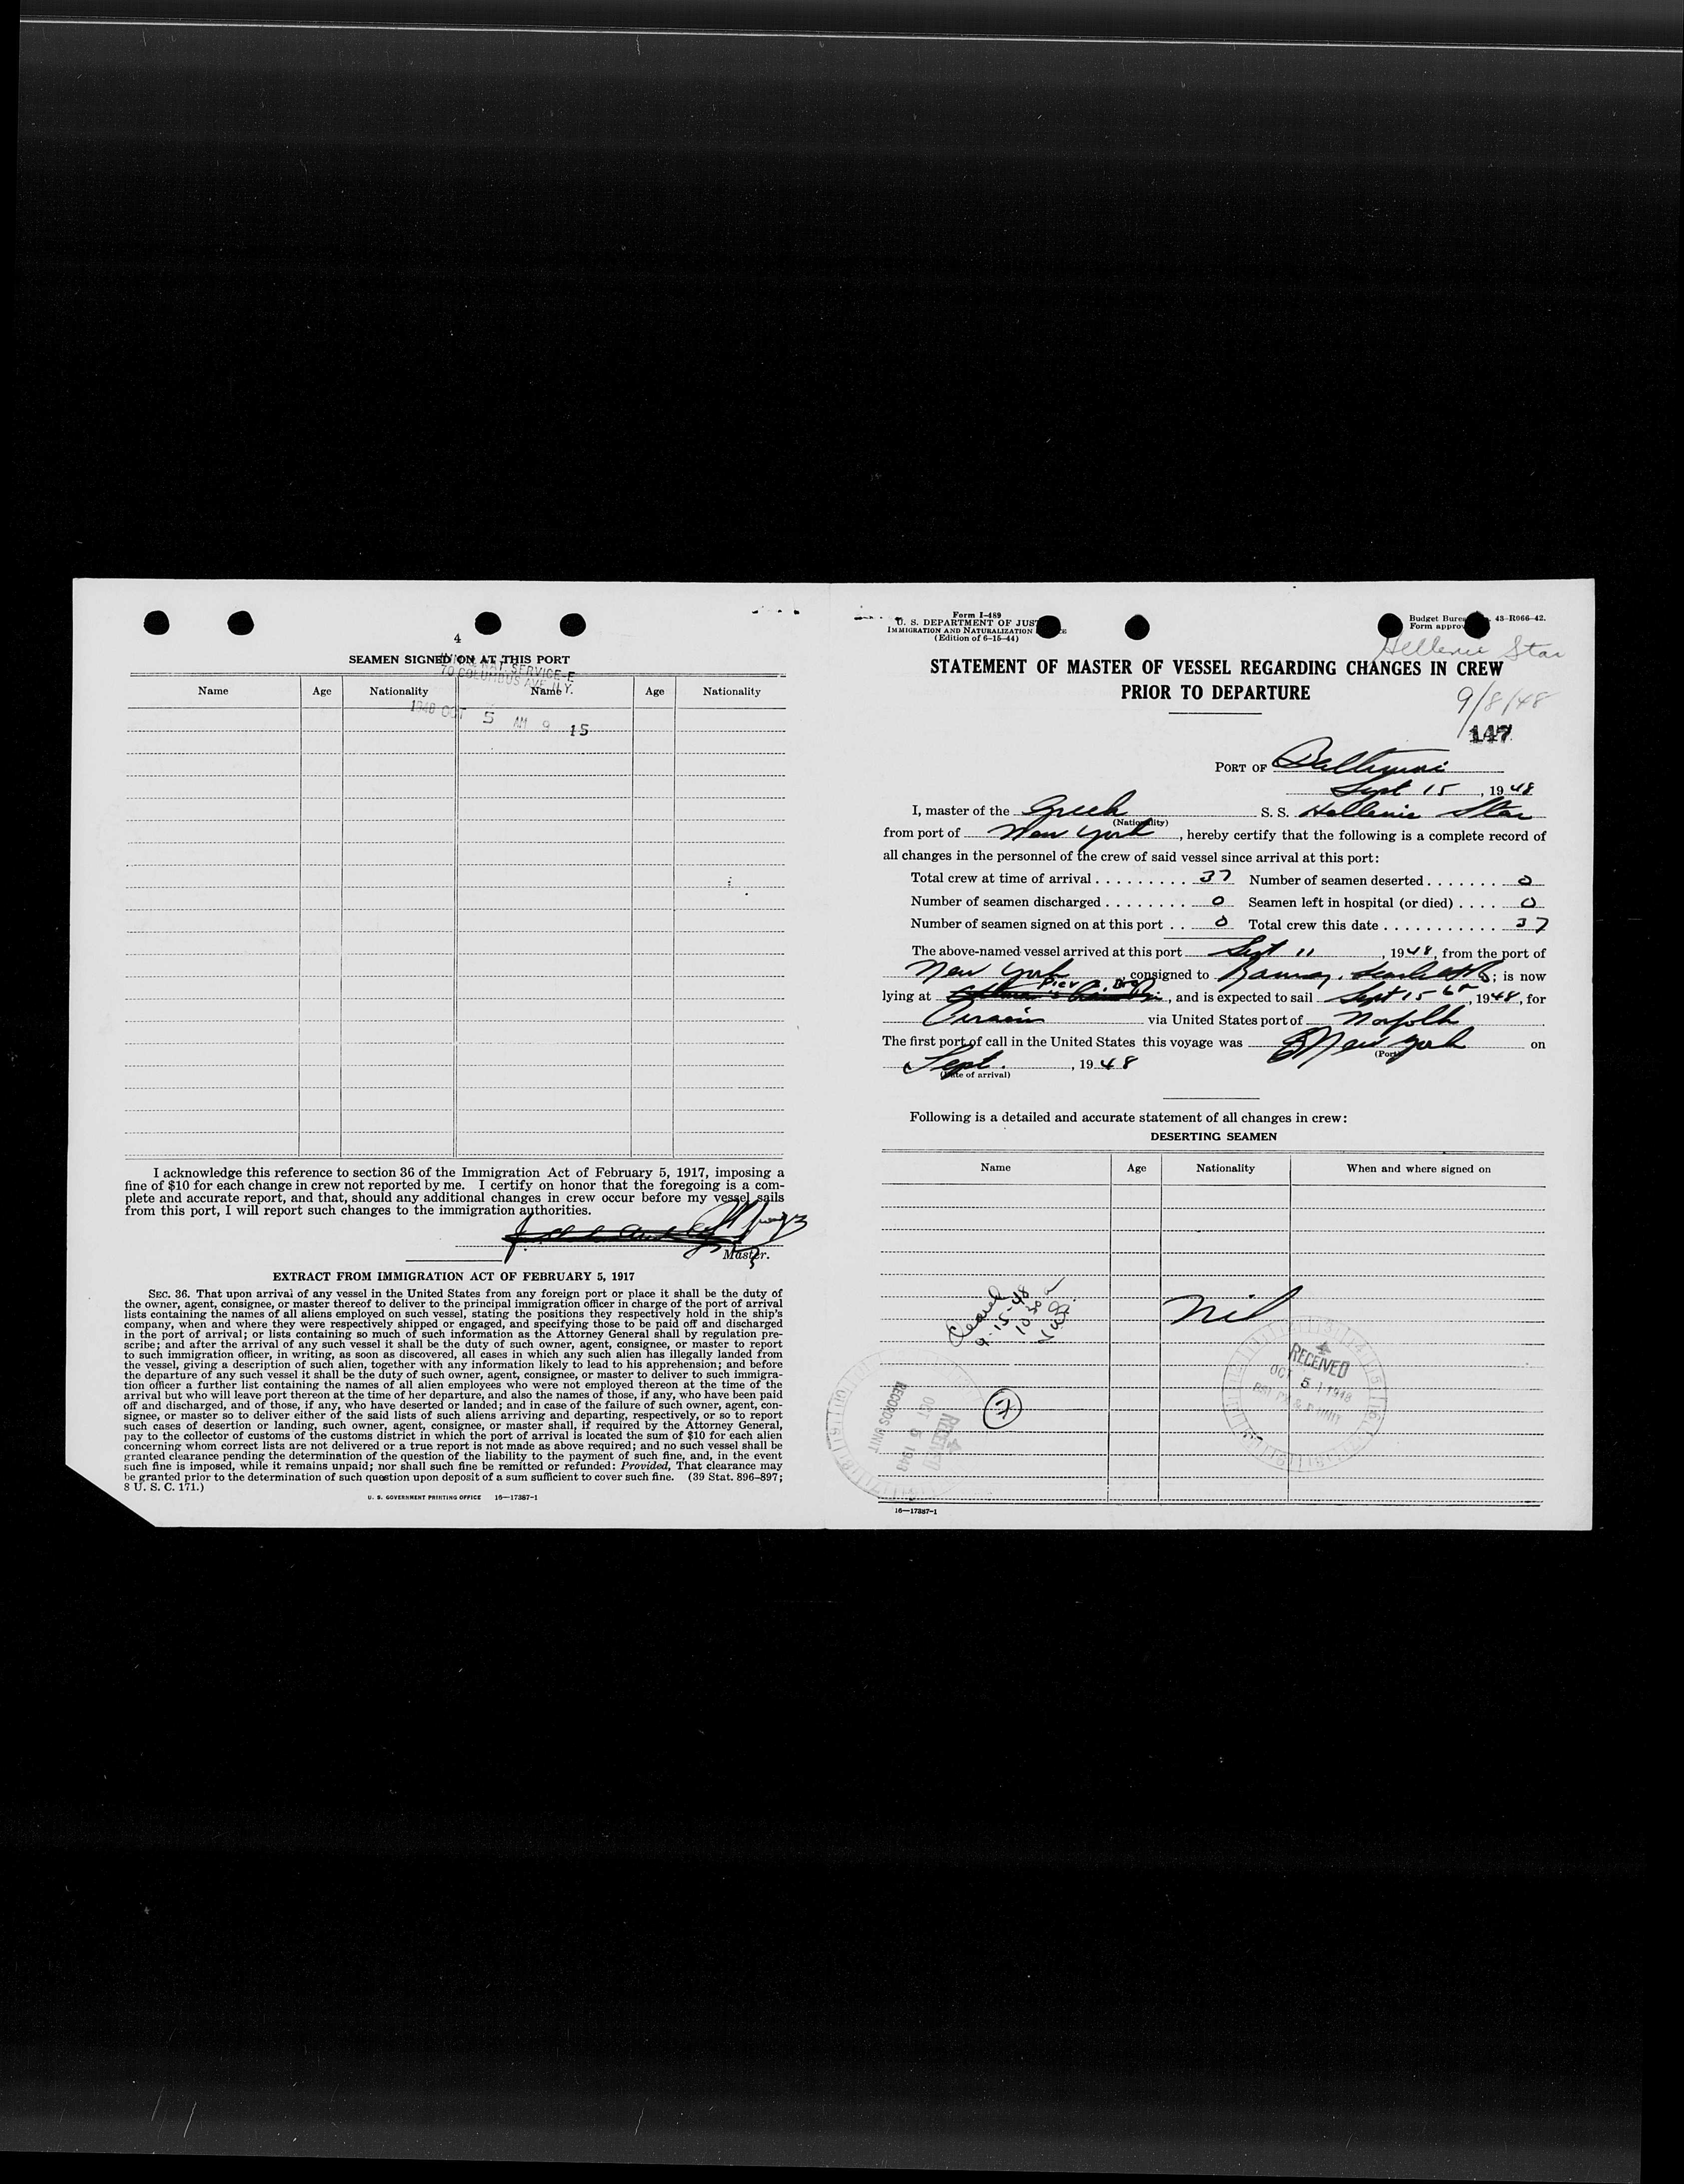 4
SEAMEN SIGNED ON AT THIS PORT
70 COLUMBUS AVE. N.Y.
Name Age Nationality Name Age Nationality
1948 OCT 5 AM 9 15
I acknowledge this reference to section 36 of the Immigration Act of February 5, 1917, imposing a
fine of $10 for each change in crew not reported by me. I certify on honor that the foregoing is a com-
plete and accurate report, and that, should any additional changes in crew occur before my vessel sails
from this port, I will report such changes to the immigration authorities.
Master.
EXTRACT FROM IMMIGRATION ACT OF FEBRUARY 5, 1917
SEC. 36. That upon arrival of any vessel in the United States from any foreign port or place it shall be the duty of
the owner, agent, consignee, or master thereof to deliver to the principal immigration officer in charge of the port of arrival
lists containing the names of all aliens employed on such vessel, stating the positions they respectively hold in the ship's
company, when and where they were respectively shipped or engaged, and specifying those to be paid off and discharged
in the port of arrival; or lists containing so much of such information as the Attorney General shall by regulation pre-
scribe; and after the arrival of any such vessel it shall be the duty of such owner, agent, consignee, or master to report
to such immigration officer, in writing, as soon as discovered, all cases in which any such alien has illegally landed from
the vessel, giving a description of such alien, together with any information likely to lead to his apprehension; and before
the departure of any such vessel it shall be the duty of such owner, agent, consignee, or master to deliver to such immigra-
tion officer a further list containing the names of all alien employees who were not employed thereon at the time of the
arrival but who will leave port thereon at the time of her departure, and also the names of those, if any, who have been paid
off and discharged, and of those, if any, who have deserted or landed; and in case of the failure of such owner, agent, con-
signee, or master so to deliver either of the said lists of such aliens arriving and departing, respectively, or so to report
such cases of desertion or landing, such owner, agent, consignee, or master shall, if required by the Attorney General,
pay to the collector of customs of the customs district in which the port of arrival is located the sum of $10 for each alien
concerning whom correct lists are not delivered or a true report is not made as above required; and no such vessel shall be
granted clearance pending the determination of the question of the liability to the payment of such fine, and, in the event
such fine is imposed, while it remains unpaid; nor shall such fine be remitted or refunded: Provided, That clearance may
be granted prior to the determination of such question upon deposit of a sum sufficient to cover such fine. (39 Stat. 896-897;
8 U. S. C. 171.)
U. S. GOVERNMENT PRINTING OFFICE 16—17387-1
Form I-489
U. S. DEPARTMENT OF JUST
IMMIGRATION AND NATURALIZATION
(Edition of 6-15-44)
Budget Bure 43-R066-42.
Form approv
Hellenic Star
STATEMENT OF MASTER OF VESSEL REGARDING CHANGES IN CREW
PRIOR TO DEPARTURE
9/8/48
147
PORT OF Baltimore
Sept 15, 1948
I, master of the Greek S. S. Hellenic Star
(Nationality)
from port of New York, hereby certify that the following is a complete record of
all changes in the personnel of the crew of said vessel since arrival at this port:
Total crew at time of arrival 37 Number of seamen deserted 0
Number of seamen discharged 0 Seamen left in hospital (or died) 0
Number of seamen signed on at this port 0 Total crew this date 37
The above-named vessel arrived at this port Sept 11, 1948, from the port of
New York, consigned to Ramsay, Scarlett; is now
lying at Pier 2, and is expected to sail Sept 15, 1948, for
via United States port of Norfolk
The first port of call in the United States this voyage was New York on
(Port)
Sept., 1948
(Date of arrival)
Following is a detailed and accurate statement of all changes in crew:
DESERTING SEAMEN
Name Age Nationality When and where signed on
Nil
Cleared
9-15-48
10:30 a
RECEIVED
OCT 5 1948
RECEIVED
OCT 5 1948
RECORDS UNIT
16—17387-1